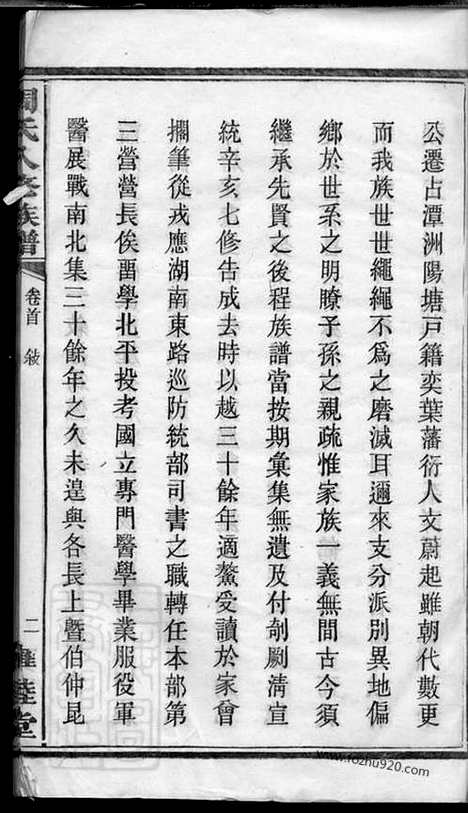 公遷占潭洲陽塘戸籍奕葉藩衍人文蔚起雖朝代數更
而我族世世繩繩不爲之磨滅耳邇來支分派別異地偏
鄉於世系之明瞭子孫之親疏惟家族一義無間古今須
繼承先賢之後程族譜當按期彙集無遺及付剞劂淸宣
統辛亥七修告成去時以越三十餘年適鰲受讀於家曾
擱筆從戎應湖南東路巡防統部司書之職轉任本部第
三營營長俟畱學北平投考國立專門醫學畢業服役軍
醫展戰南北集三十餘年之久未遑與各長上曁伯仲昆
氏八修族譜
卷首
敍
二
睦堂
www.rozhu920.com